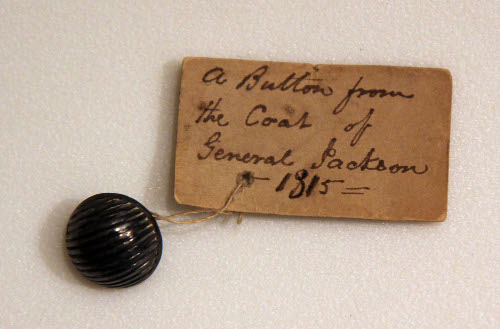 A Button from
the Coat of
General Jackson
- 1815 =